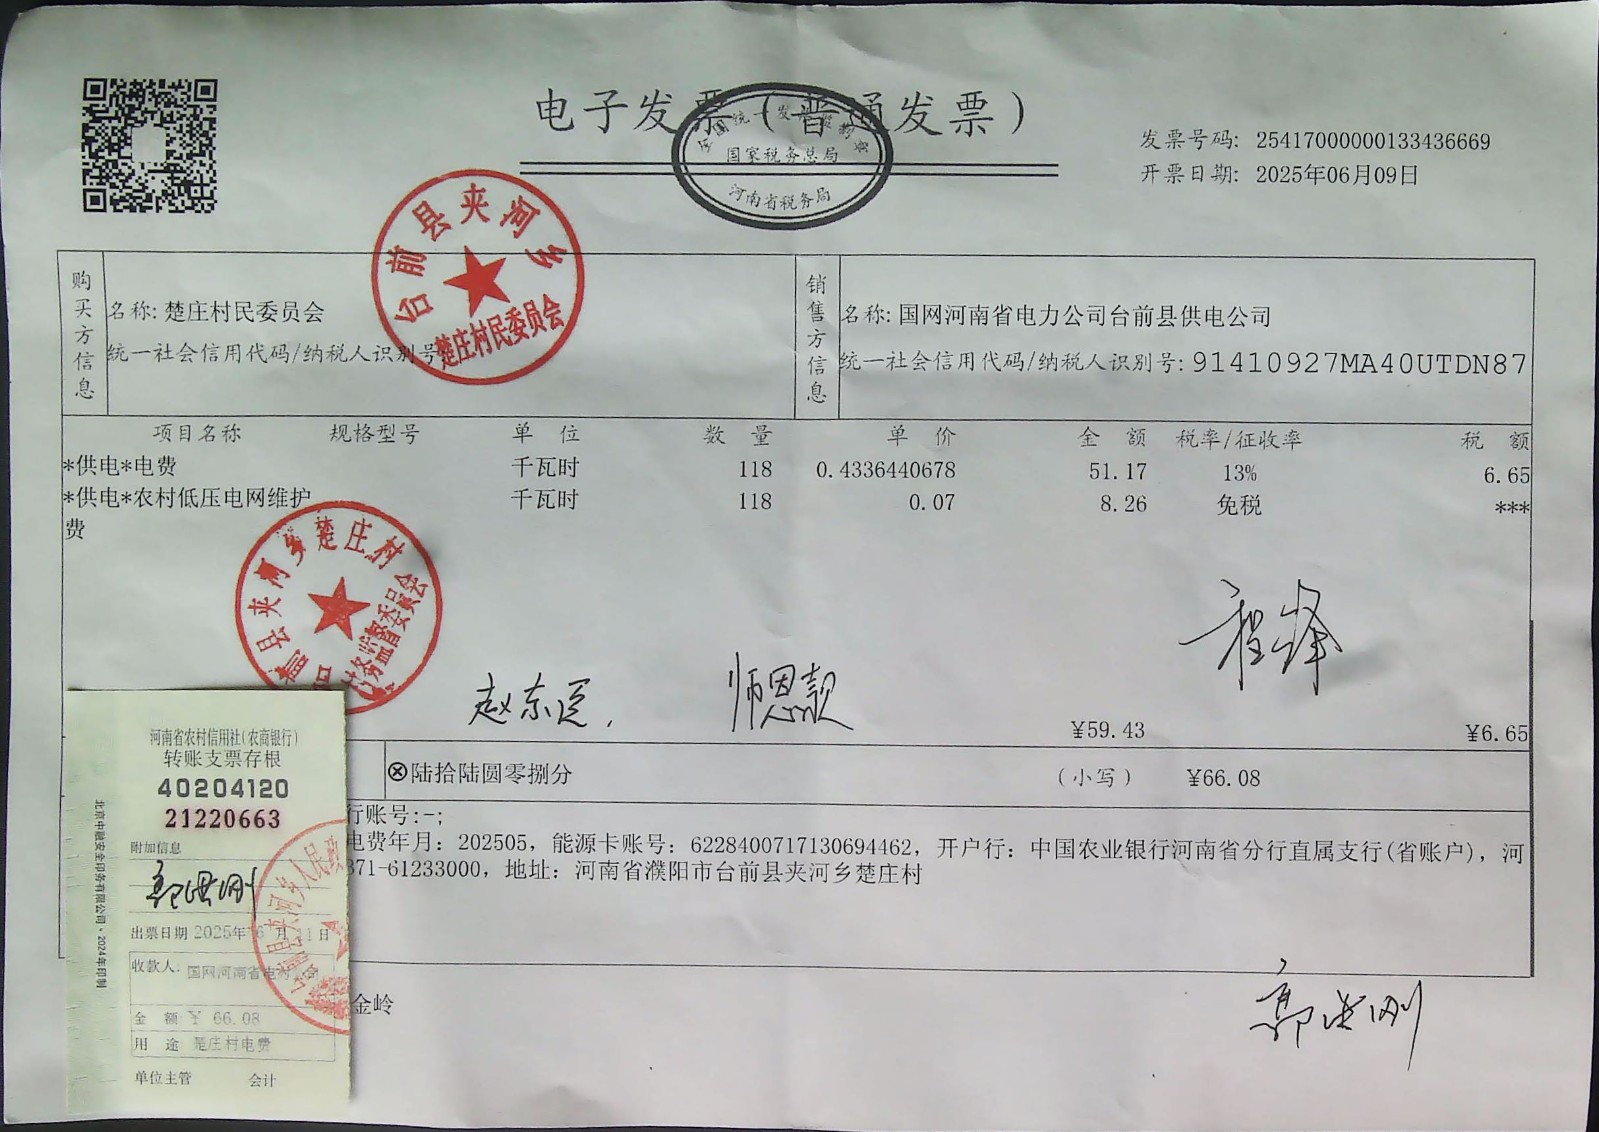 电子发票（普通发票）
全国统一发票监制章
国家税务总局
河南省税务局
发票号码: 25417000000133436669
开票日期: 2025年06月09日
购买方信息
名称: 楚庄村民委员会
统一社会信用代码/纳税人识别号
台前县夹河乡
楚庄村民委员会
销售方信息
名称: 国网河南省电力公司台前县供电公司
统一社会信用代码/纳税人识别号: 91410927MA40UTDN87
项目名称 规格型号 单位 数量 单价 金额 税率/征收率 税额
*供电*电费 千瓦时 118 0.4336440678 51.17 13% 6.65
*供电*农村低压电网维护费 千瓦时 118 0.07 8.26 免税 ***
县夹河乡楚庄村
村务监督委员会
赵东
师恩款
程烽
¥59.43 ¥6.65
⊗陆拾陆圆零捌分 （小写） ¥66.08
行账号:-;
电费年月: 202505, 能源卡账号: 6228400717130694462, 开户行: 中国农业银行河南省分行直属支行(省账户), 河
371-61233000, 地址: 河南省濮阳市台前县夹河乡楚庄村
金岭
郭洪刚
河南省农村信用社(农商银行)
转账支票存根
40204120
21220663
附加信息
郭洪刚
出票日期 2025年6月11日
收款人: 国网河南省电
金额 ¥ 66.08
用途 楚庄村电费
单位主管 会计
北京中融安全印务有限公司·2024年印制
县夹河乡人民政